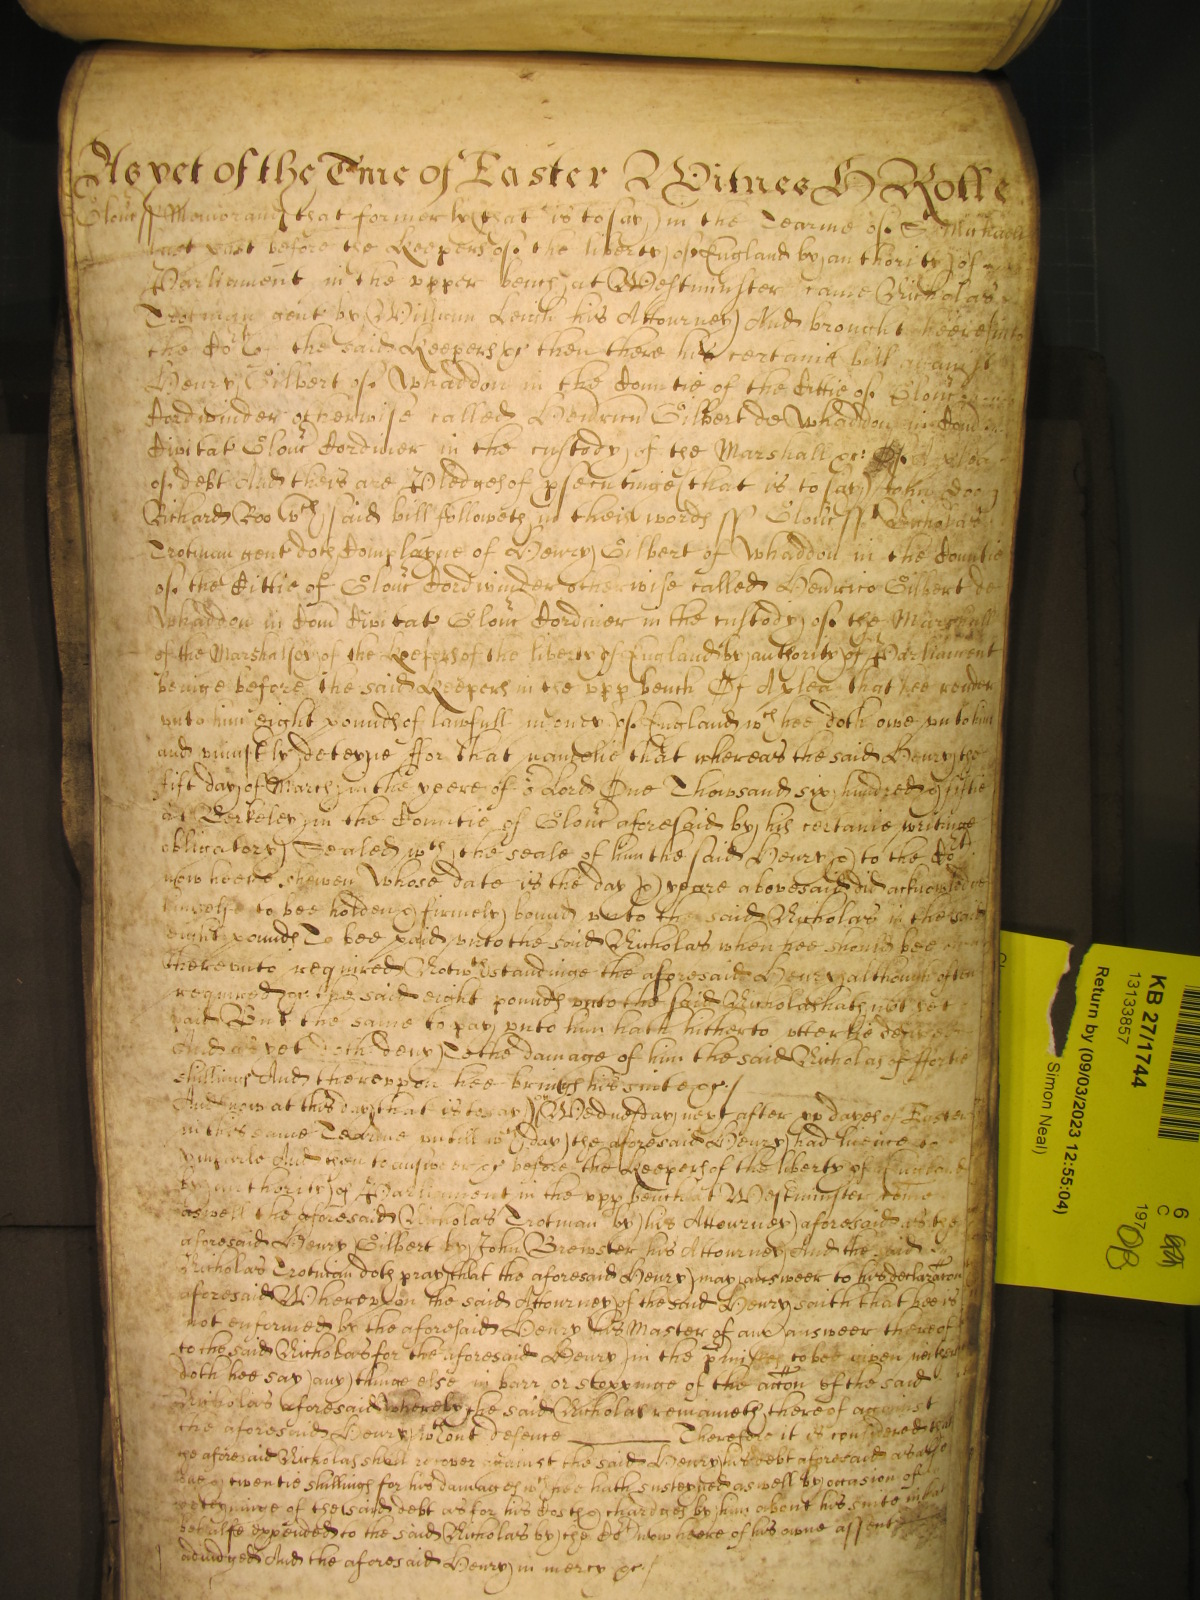 As yet of the Tme of Easter Witnes H Rolle
Glouc ss Memorand that formerly (that is to say) in the Tearme of St Michaell
last past before the Keepers of the liberty of England by authority of
Parliament in the upper bench at Westminster came Nicholas
Trotman gent by William Leigh his Attourney And brought heere into
the Cort of the said Keepers &c then there his certaine bill against
Henry Gilbert of Whaddon in the Countie of the Cittie of Glouc
Cordwinder otherwise called Henricu Gilbert de Whaddon in Com
Civitat Glouc Cordiner in the custody of the Marshall &c: Of A plea
of debt And theis are Pledges of psecutinge (that is to say) John Doo
Richard Roo wch said bill followeth in theis words ss Glouc ss Nicholas
Trotman gent doth Complayne of Henry Gilbert of Whaddon in the Countie
of the Cittie of Glouc Cordwinder otherwise called Henrico Gilbert de
Whaddon in Com Civitat Glouc Cordiner in the custody of the Marshall
of the Marshalsey of the Keepers of the liberty of England by authority of Parliament
beinge before the said Keepers in the upp bench Of A plea that hee render
unto him eight pounds of lawfull money of England wch hee doth owe unto him
and uniustly deteyne ffor that namelie that whereas the said Henry the
fift day of March in the yeere of or Lord One Thowsand six hundred & fiftie
at Berkeley in the Countie of Glouc aforesaid by his certaine writinge
obligatory Sealed wth the seale of him the said Henry & to the Cort
now heere shewen Whose date is the day & yeare abovesaid did acknowledge
himselfe to bee holden & firmely bound unto the said Nicholas in the said
eight pounds To bee paid unto the said Nicholas when hee should bee
thereunto required Notwthstandinge the aforesaid Henry although often
required &c the said eight pounds unto the said Nicholas hath not yet
paid But the same to pay unto him hath hitherto utterlie denied
And as yet doth deny To the damage of him the said Nicholas of ffortie
shillings And thereuppon hee brings his suite &c /
And now at this day (that is to say) on Wednesday next after xv dayes of Easter
in this same Tearme untill wch day the aforesaid Henry had licence to
imparle And then to answeer &c before the Keepers of the liberty of England
by authority of Parliament in the upp bench at Westminster come
aswell the aforesaid Nicholas Trotman by his Attourney aforesaid as the
aforesaid Henry Gilbert by John Brewster his Attourney And the said
Nicholas Trotman doth pray that the aforesaid Henry may answeer to his declaracon
aforesaid Whereupon the said Attourney of the said Henry saith that hee is
not enformed by the aforesaid Henry his Master of any answeer thereof
to the said Nicholas for the aforesaid Henry in the pmisses to bee given neither
doth hee say any thinge else in barr or stoppinge of the accon of the said
Nicholas aforesaid whereby the said Nicholas remaineth thereof against
the aforesaid Henry wthout defence Therefore it is considered that
the aforesaid Nicholas shall recover against the said Henry his debt aforesaid
& twentie shillings for his damages wch hee hath susteyned aswell by occasion of
deteyninge of the said debt as for his Costs & chardges by him about his suite in that
behalfe expended to the said Nicholas by the Cort now heere of his owne assent
adiudged And the aforesaid Henry in mercy &c /
KB 27/1744
13133857
Return by (09/03/2023 12:55:04)
Simon Neal)
6
C
197